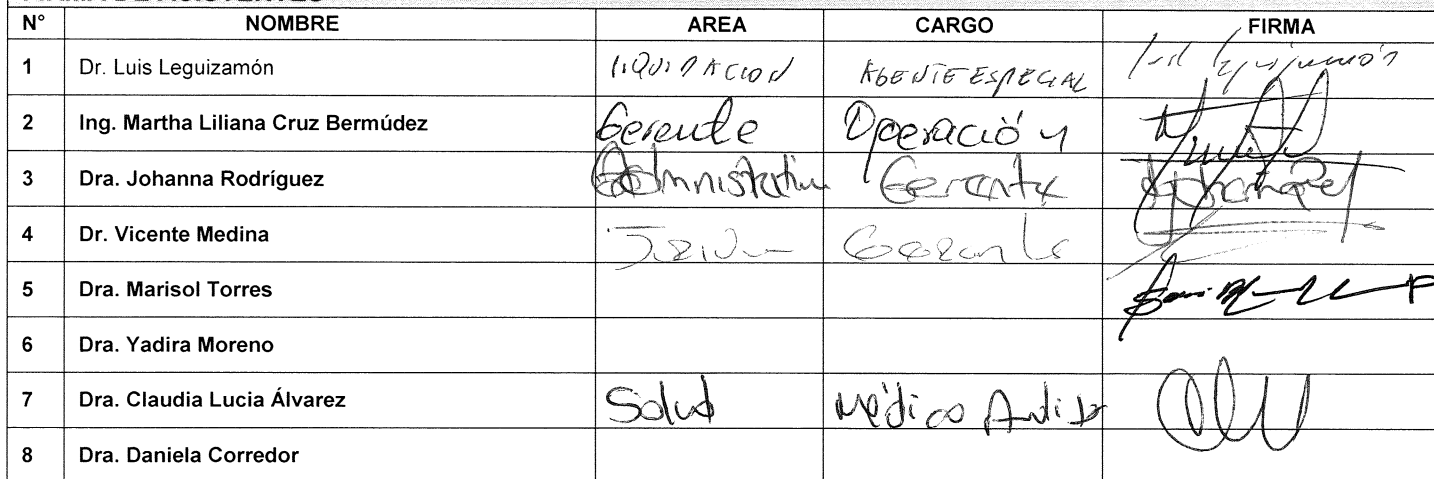 N° NOMBRE AREA CARGO FIRMA
1 Dr. Luis Leguizamón LIQUIDACION AGENTE ESPECIAL
2 Ing. Martha Liliana Cruz Bermúdez Gerente Operación
3 Dra. Johanna Rodríguez Administrativa Gerente
4 Dr. Vicente Medina Gerente
5 Dra. Marisol Torres
6 Dra. Yadira Moreno
7 Dra. Claudia Lucia Álvarez Salud Médico Auditor
8 Dra. Daniela Corredor